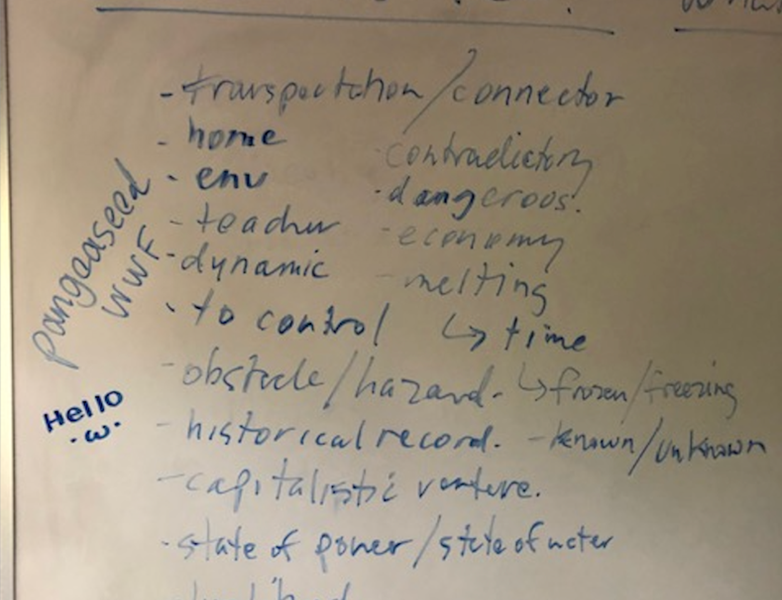 - transportation/connector
- home
- contradictory
- env
- dangeroos.
- teacher
- economy
- dynamic
- melting
- to control
↳ time
- obstacle/hazard.
↳ frozen/freezing
- historical record.
- known/unknown
- capitalistic venture.
- state of power/state of water
pangeaseed
WWF
Hello
·ω·